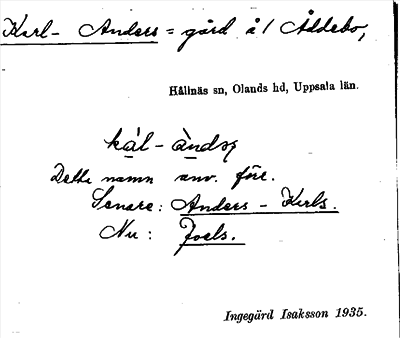 Karl- Anders = gård å / Åddebo,
Hållnäs sn, Olands hd, Uppsala län.
kàl - àndəṣ
Detta namn anv. förr.
Senare: Anders - Kerls.
Nu: Joels.
Ingegärd Isaksson 1935.